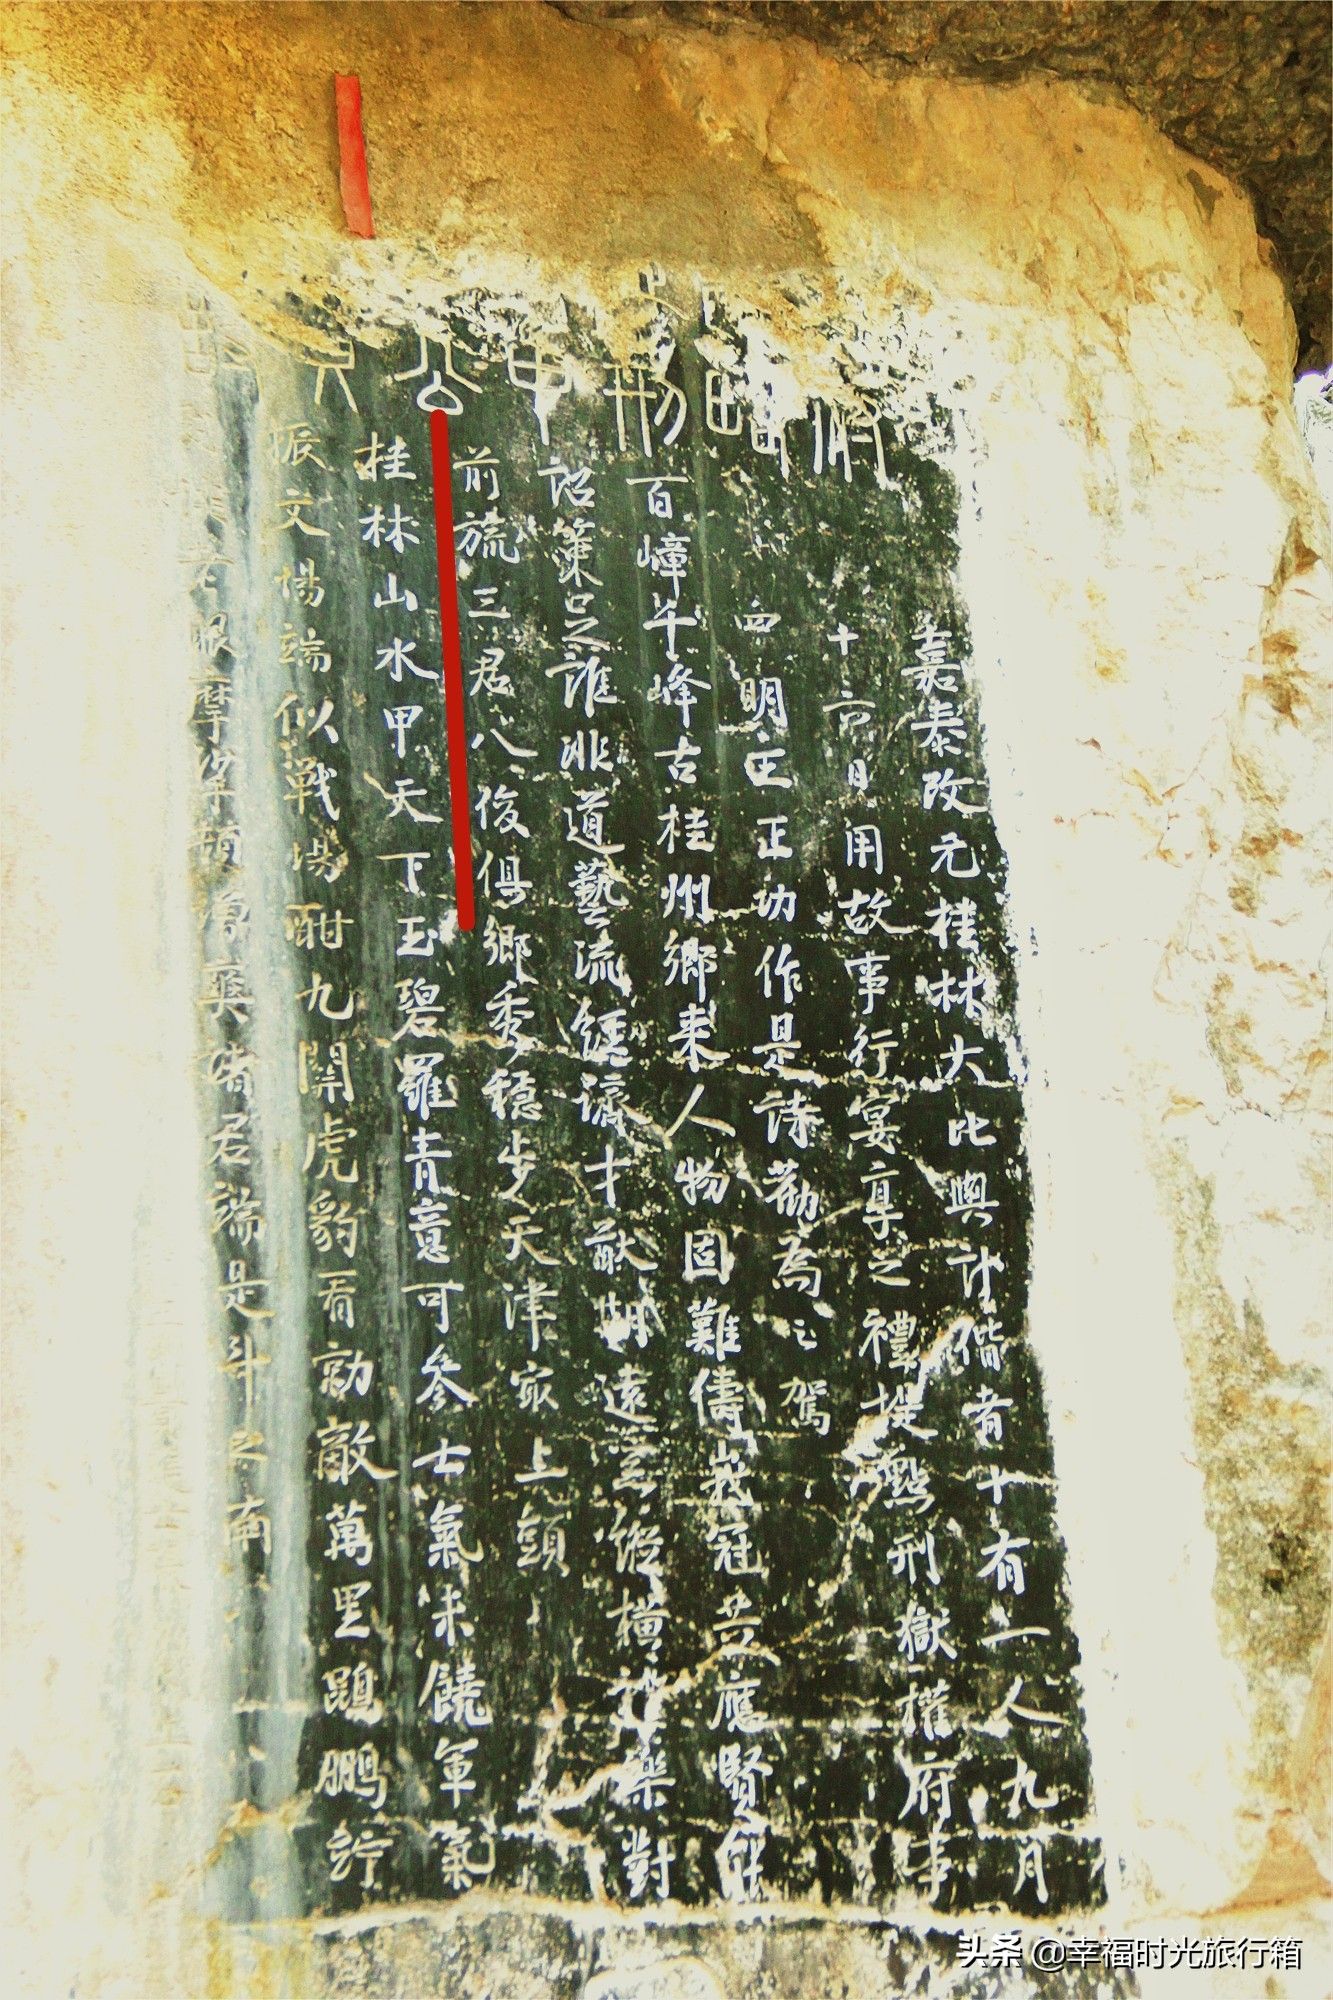 刑 公
嘉泰改元桂林大比與計偕者十有一人九月
十六日用故事行宴享之禮提點刑獄權府事
四明王正功作是詩勸為之駕
百嶂千峰古桂州鄉來人物固難儔峩冠共應賢能
詔策足誰非道藝流經濟才猷期遠器縱橫禮樂對
前旒三君八俊俱鄉秀穩步天津冣上頭
桂林山水甲天下玉碧羅青意可參士氣未饒軍氣
振文場端似戰場酣九關虎豹看勍敵萬里鵾鵬竚
老眼摩挲頓增爽諸君端是斗之南
头条 @幸福时光旅行箱